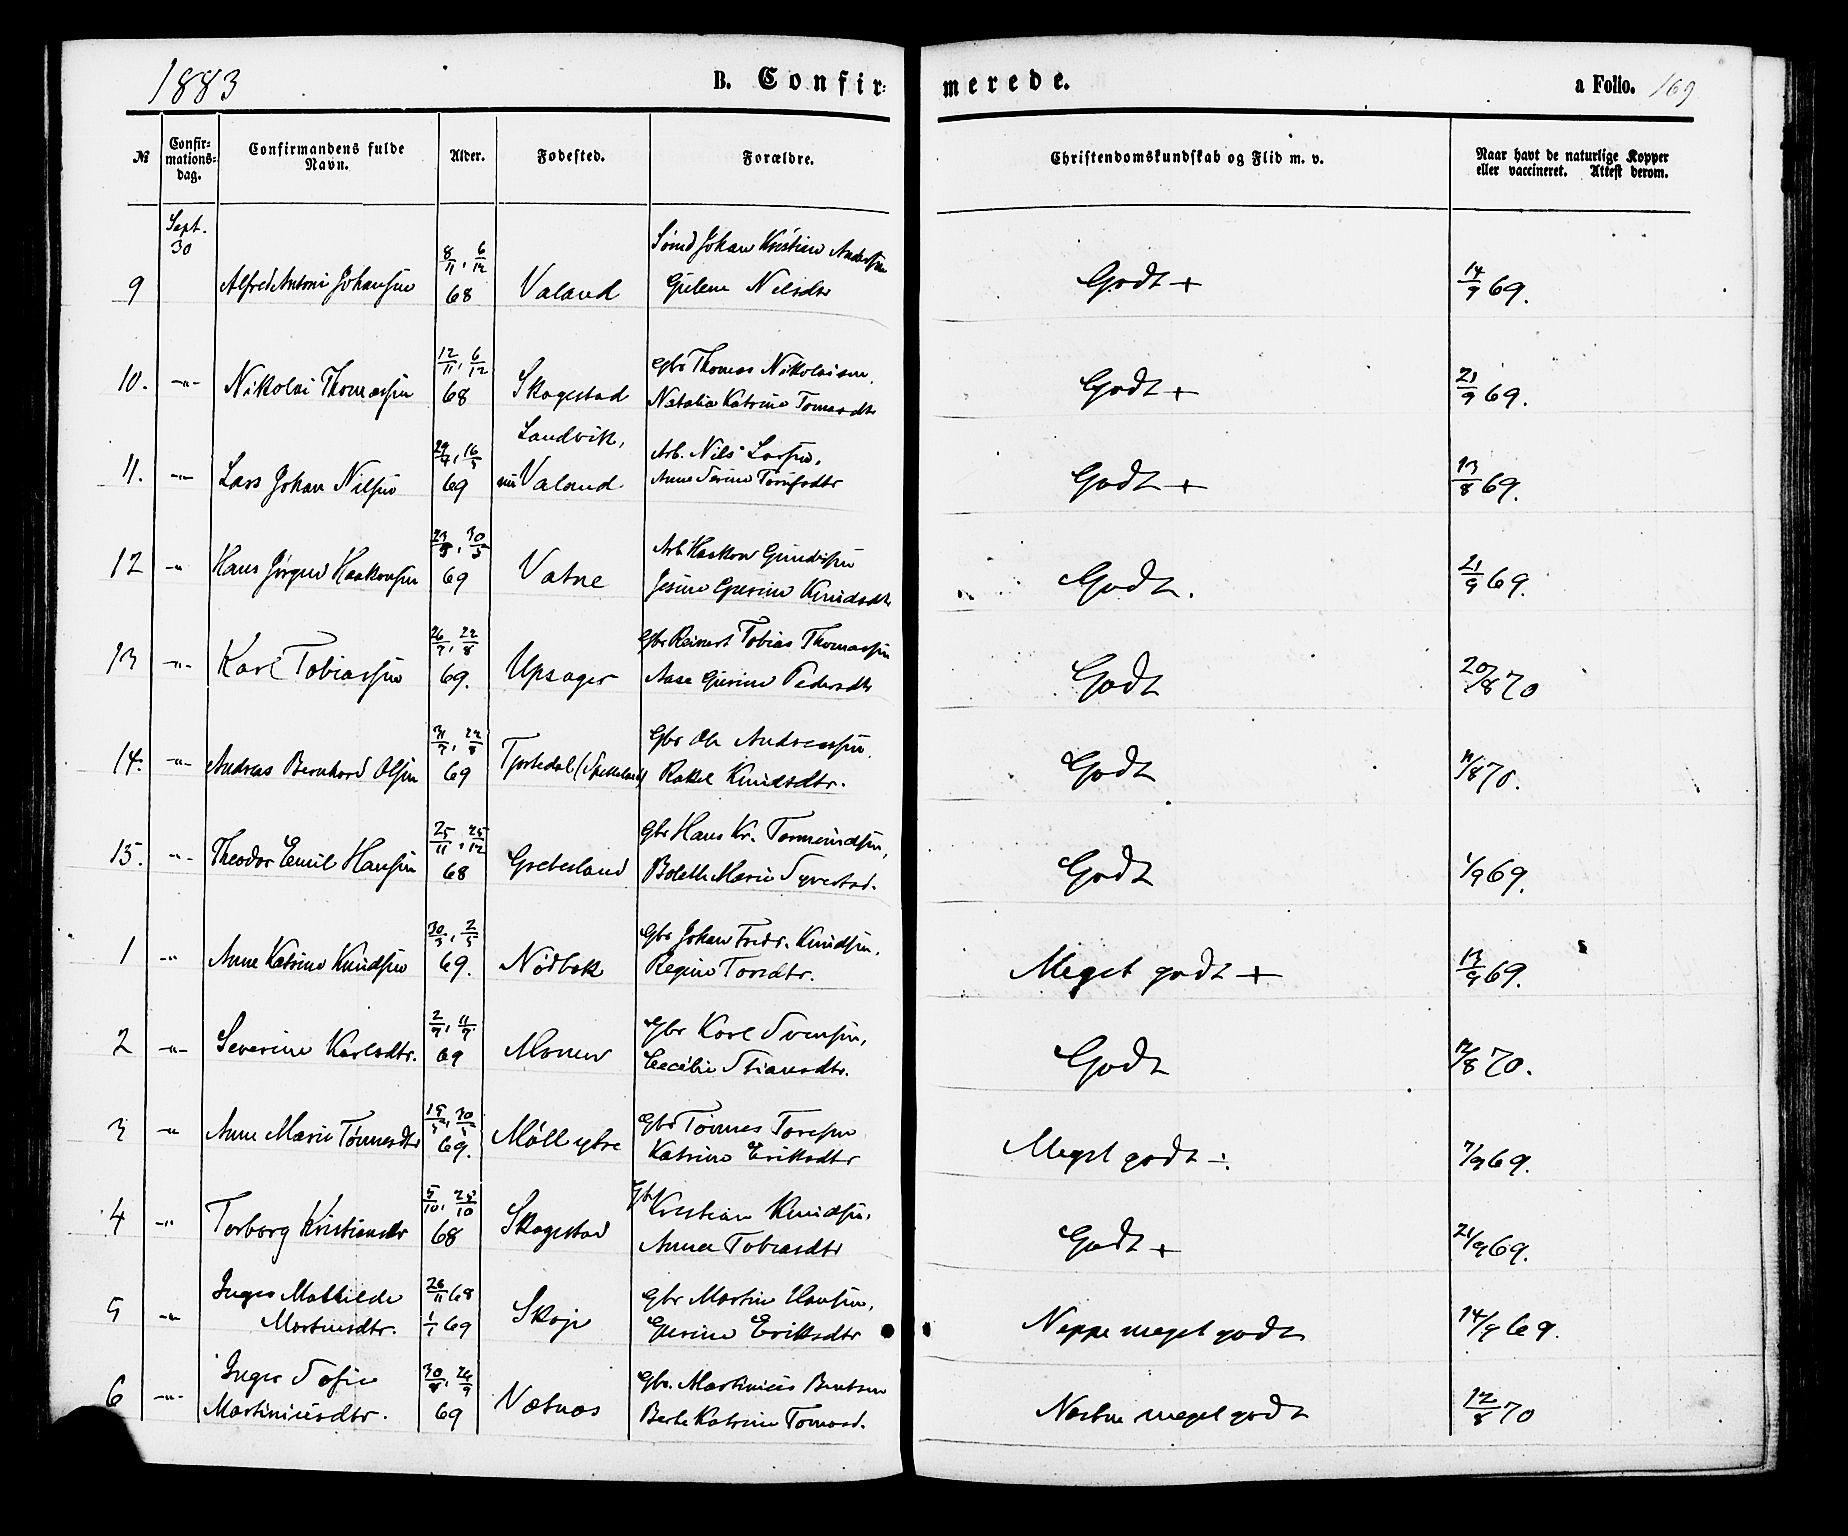 1883
B. Confir-
merede.
a Folio. 169
№ Confir-mations-dag. Confirmandens fulde Navn. Alder. Fødested. Forældre. Christendomskundskab og Flid m. v. Naar havt de naturlige Kopper eller vaccineret. Attest derom.
Sept. 30
9 Alfred Antoni Johansen 8/11, 6/12 68 Valand Johan Kristian Andersen Gulene Nilsdtr Godt + 14/9 69.
10. -"- Nikolai Thomassen 12/11, 6/12 68 Skogestad Gbr Thomas Nikolaisen, Natalia Katrine Tomasdtr Godt + 21/9 69.
11. -"- Lars Johan Nilsen 29/4, 16/5 69 Landvik, nu Valand Arb. Nils Larsen, Anne Serine Godt + 13/8 69.
12 -"- Hans Jørgen Haakonsen 23/5, 30/5 69 Vatne Arb Haakon Gundersen Jesine Gurine Knudsdtr Godt. 21/9 69.
13 -"- Karl Tobiassen 26/7, 22/8 69. Upsager Gbr Reinert Tobias Thomassen Aase Gurine Pedersdtr Godt 20/8 70
14. -"- Andreas Bernhard Olsen 31/7, 22/8 69 Tjortedal (Spikeland) Gbr Ole Andreassen, Rakel Knudsdtr. Godt 11/8 70.
15. -"- Theodor Emil Hansen 25/11, 25/12 68 Grebesland Gbr Hans Kr. Tormundsen, Bolette Marie Syvertsd. Godt 1/9 69.
1 -"- Anne Katrine Knudsen 30/3, 2/5 69. Nødbek Gbr Johan Fredr. Knudsen, Regine Torsdtr. Meget godt + 13/9 69.
2 -"- Severine Karlsdtr. 2/7, 11/7 69 Monen Gbr Karl Svensen, Cecilie Stiansdtr. Godt 12/8 70.
3 -"- Anne Marie Tønnesdtr 15/5, 30/5 69. Møll ytre Gbr Tønnes Toresen Katrine Eriksdtr Meget godt ÷ 7/9 69.
4 -"- Torborg Kristiansdtr 5/10, 25/10 68 Skogestad Gbr Kristian Knudsen, Anna Tobiasdtr Godt + 21/9 69.
5 -"- Inger Mathilde Martinsdtr. 26/11 68 1/1 69 Skoje Gbr Martin Hansen, Gurine Eriksdtr Neppe meget godt 14/9 69.
6 -"- Inger Sofie Martiniusdtr. 30/8, 26/9 69 Vatnas Gbr. Martinius Bentsen Berte Katrine Tomasd. Næsten meget godt 12/8 70